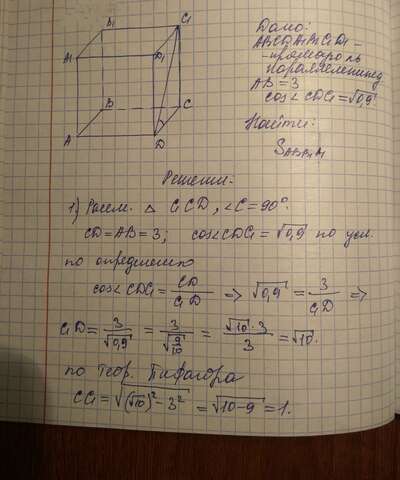 B₁
C₁
A₁
D₁
B
C
A
D
Дано:
ABCDA₁B₁C₁D₁ –
- прямоуголь
параллелепипед
AB = 3
cos∠CDC₁ = √0,9
Найти:
S
Решение:
1) Рассм. △ C₁CD, ∠C = 90°.
CD = AB = 3; cos∠CDC₁ = √0,9 по усл.
по определению
cos∠CDC₁ = CD/C₁D => √0,9 = 3/C₁D =>
C₁D = 3/√0,9 = 3/√(9/10) = √10·3/3 = √10.
по теор. Пифагора
CC₁ = √((√10)² - 3²) = √(10-9) = 1.